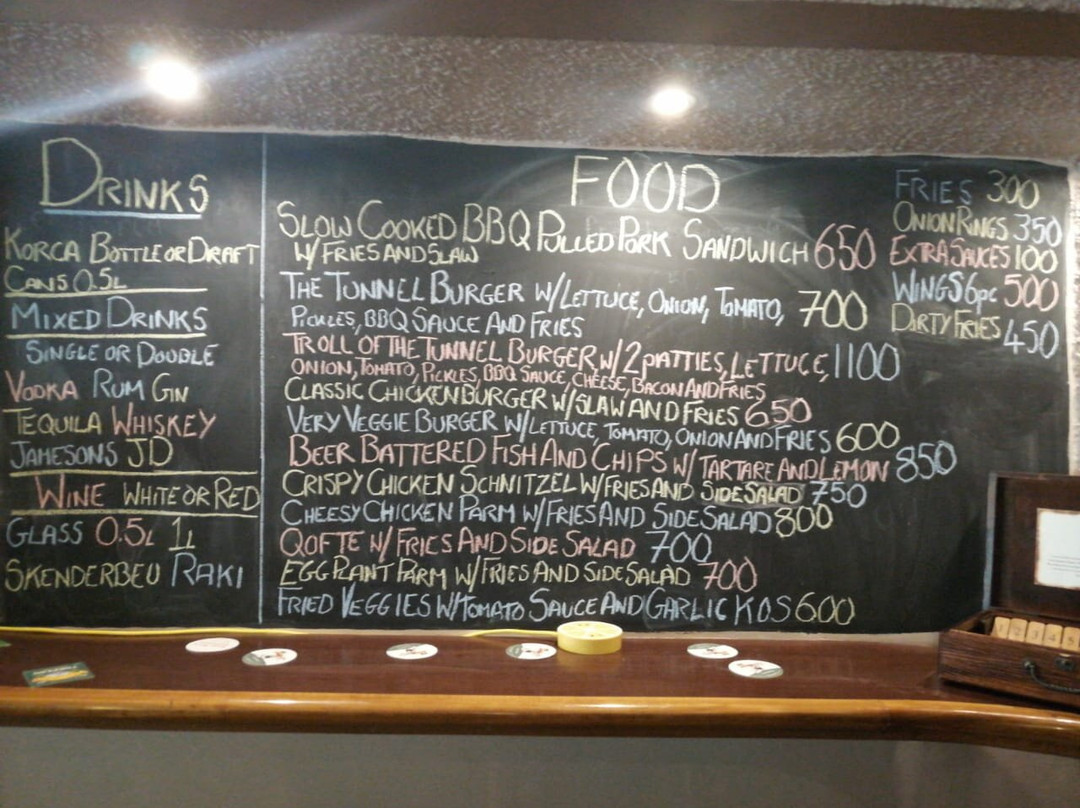 DRINKS
KORCA BOTTLE OR DRAFT
CANS 0.5L
MIXED DRINKS
SINGLE OR DOUBLE
VODKA RUM GIN
TEQUILA WHISKEY
JAMESONS JD
WINE WHITE OR RED
GLASS 0.5L 1L
SKENDERBEU RAKI
FOOD
SLOW COOKED BBQ PULLED PORK SANDWICH 650
W/ FRIES AND SLAW
THE TUNNEL BURGER W/ LETTUCE, ONION, TOMATO, 700
PICKLES, BBQ SAUCE AND FRIES
TROLL OF THE TUNNEL BURGER W/ 2 PATTIES, LETTUCE, 1100
ONION, TOMATO, PICKLES, BBQ SAUCE, CHEESE, BACON AND FRIES
CLASSIC CHICKEN BURGER W/ SLAW AND FRIES 650
VERY VEGGIE BURGER W/ LETTUCE, TOMATO, ONION AND FRIES 600
BEER BATTERED FISH AND CHIPS W/ TARTARE AND LEMON 850
CRISPY CHICKEN SCHNITZEL W/ FRIES AND SIDE SALAD 750
CHEESY CHICKEN PARM W/ FRIES AND SIDE SALAD 800
QOFTE W/ FRIES AND SIDE SALAD 700
EGG PLANT PARM W/ FRIES AND SIDE SALAD 700
FRIED VEGGIES W/ TOMATO SAUCE AND GARLIC KOS 600
FRIES 300
ONION RINGS 350
EXTRA SAUCES 100
WINGS 6pc 500
DIRTY FRIES 450
1 2 3 4 5